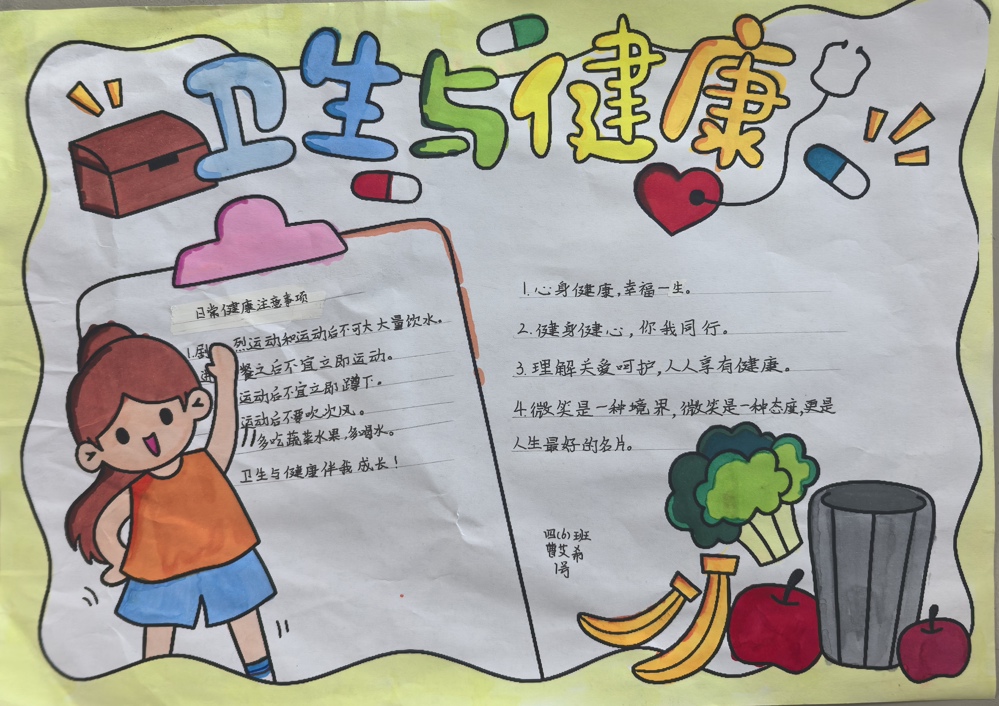 卫生与健康
日常健康注意事项
1.剧烈运动和运动后不可大大量饮水。
餐之后不宜立即运动。
运动后不宜立即蹲下。
运动后不要吹次风。
多吃蔬菜水果,多喝水。
卫生与健康伴我成长!
1.心身健康,幸福一生。
2.健身健心,你我同行。
3.理解关爱呵护,人人享有健康。
4.微笑是一种境界,微笑是一种态度,更是
人生最好的名片。
四(6)班
曹艾希
1号